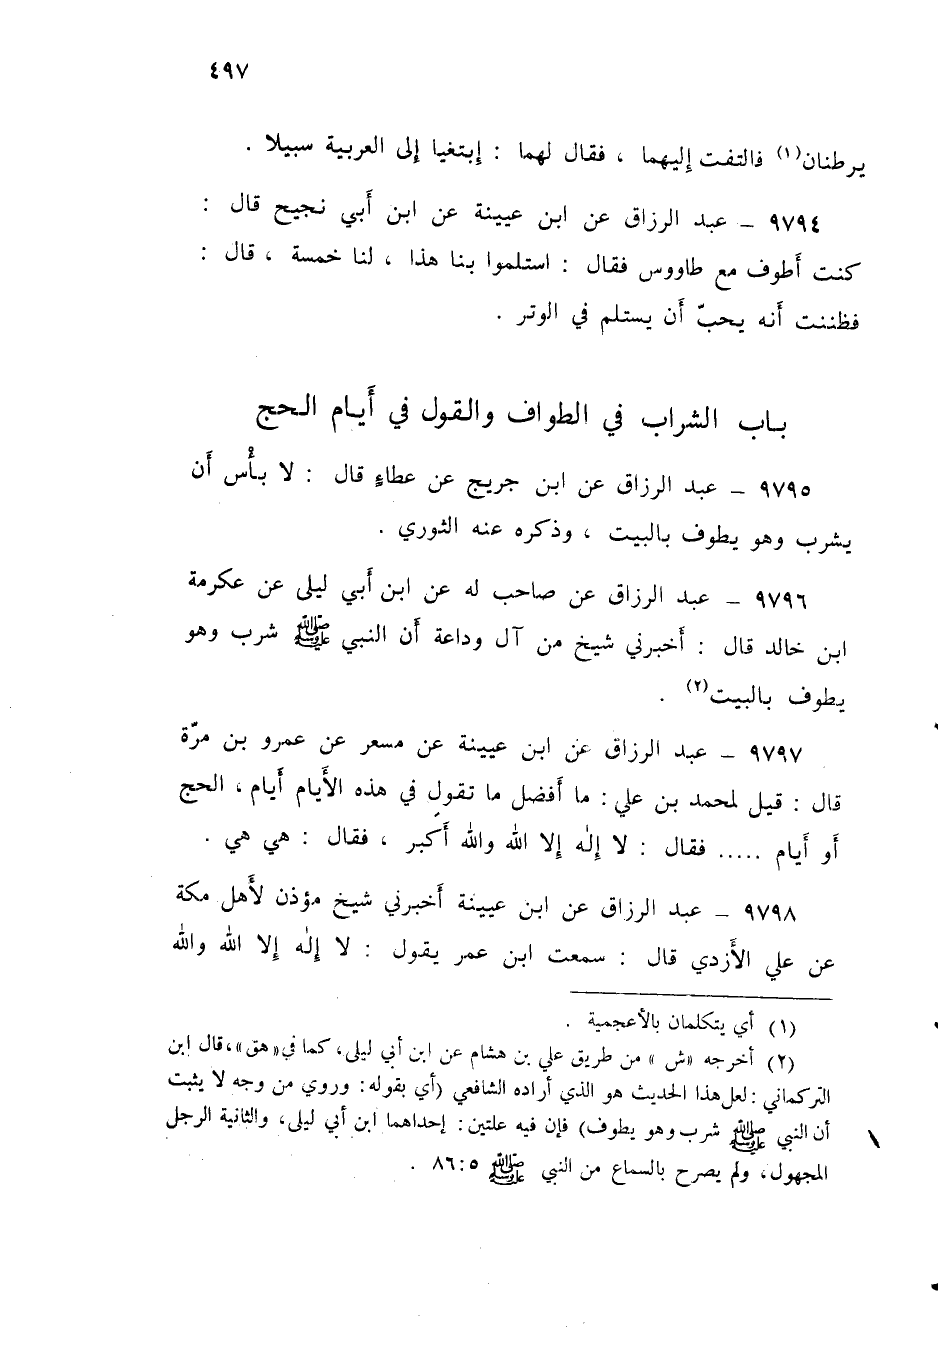 ٤٩٧
يرطنان(١) فالتفت إليهما ، فقال لهما : إبتغيا إلى العربية سبيلا .
٩٧٩٤ – عبد الرزاق عن ابن عيينة عن ابن أبي نجيح قال :
كنت أطوف مع طاووس فقال : استلموا بنا هذا ، لنا خمسة ، قال :
فظننت أنه يحبّ أن يستلم في الوتر .
باب الشراب في الطواف والقول في أيام الحج
٩٧٩٥ – عبد الرزاق عن ابن جريج عن عطاءٍ قال : لا بأْس أن
يشرب وهو يطوف بالبيت ، وذكره عنه الثوري .
٩٧٩٦ – عبد الرزاق عن صاحب له عن ابن أبي ليلى عن عكرمة
ابن خالد قال : أخبرني شيخ من آل وداعة أن النبي ﷺ شرب وهو
يطوف بالبيت(٢) .
٩٧٩٧ – عبد الرزاق عن ابن عيينة عن مسعر عن عمرو بن مرّة
قال : قيل لمحمد بن علي : ما أفضل ما تقول في هذه الأيام أيام ، الحج
أو أيام ..... فقال : لا إله إلا الله والله أكبر ، فقال : هي هي .
٩٧٩٨ – عبد الرزاق عن ابن عيينة أخبرني شيخ مؤذن لأهل مكة
عن علي الأزدي قال : سمعت ابن عمر يقول : لا إله إلا الله والله
(١) أي يتكلمان بالأعجمية .
(٢) أخرجه «ش » من طريق علي بن هشام عن ابن أبي ليلى، كما في «هق»، قال ابن
التركماني : لعل هذا الحديث هو الذي أراده الشافعي (أي بقوله: وروي من وجه لا يثبت
أن النبي ﷺ شرب وهو يطوف) فإن فيه علتين : إحداهما ابن أبي ليلى، والثانية الرجل
المجهول، ولم يصرح بالسماع من النبي ﷺ ٥:٨٦ .